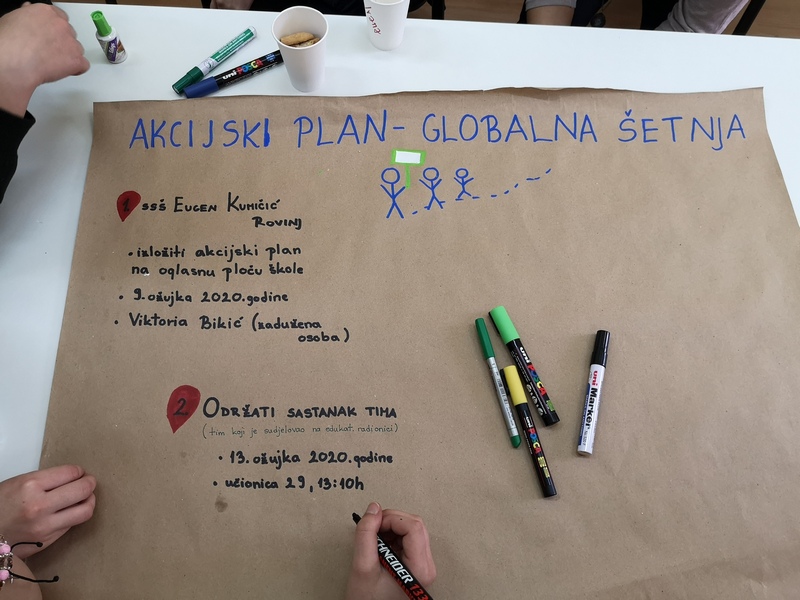 AKCIJSKI PLAN- GLOBALNA ŠETNJA
1. SSŠ EUGEN KUMIČIĆ
ROVINJ
• izložiti akcijski plan
na oglasnu ploču škole
• 9. ožujka 2020. godine
• Viktoria Bikić (zadužena
osoba)
2. ODRŽATI SASTANAK TIMA
(tim koji je sudjelovao na edukat. radionici)
• 13. ožujka 2020. godine
• učionica 29, 13:10h
uni POSCA
uni POSCA
uni POSCA
uni Marker
SCHNEIDER 133